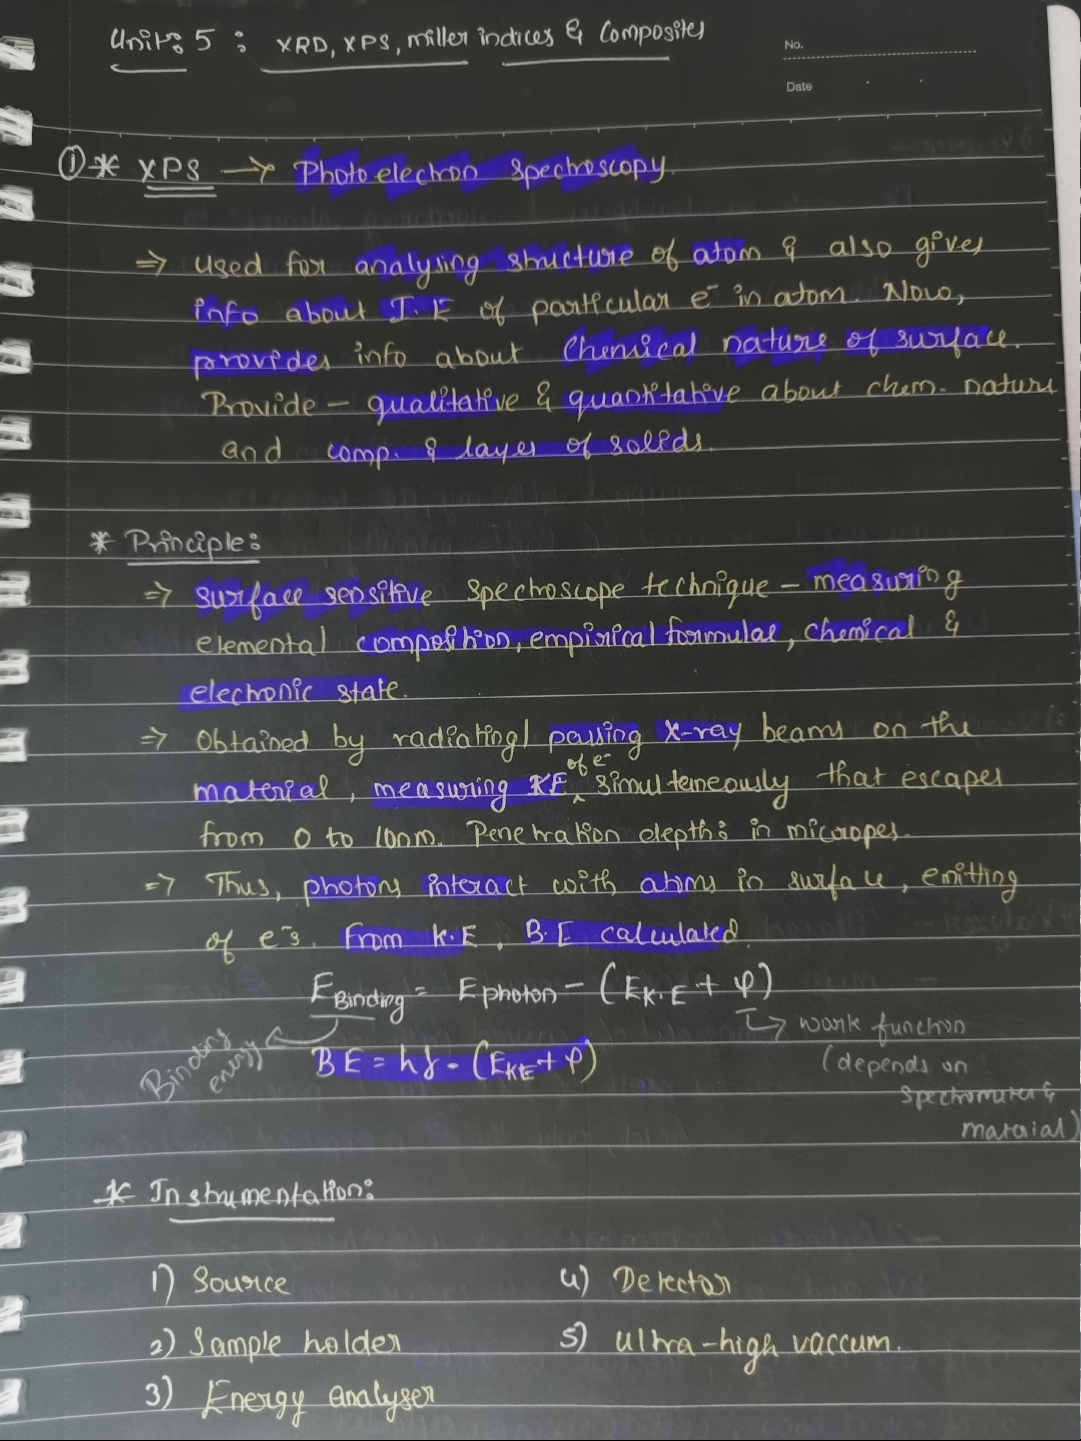 Unit: 5 : XRD, XPS, miller indices & Composites
No.
Date
① * XPS → Photoelectron Spectroscopy.
⇒ used for analysing structure of atom & also gives
info about I.E of particular e⁻ in atom. Now,
provides info about Chemical nature of surface.
Provide - qualitative & quantitative about chem. nature
and comp. & layer of solids.
* Principle:
⇒ Surface sensitive Spectroscope technique - measuring
elemental composition, empirical formulae, chemical &
electronic state.
⇒ Obtained by radiating/ passing X-ray beams on the
material, measuring KE of e⁻ simulteneously that escapes
from 0 to 10nm. Penetration depth: in micropes.
⇒ Thus, photons interact with atoms in surface, emitting
of e⁻s. From K.E, B.E calculated.
E Binding = E photon - (E K.E + φ)
Binding energy
→ work function
(depends on
spectrometer &
material)
BE = hγ - (E KE + φ)
* Instrumentation:
1) Source
4) Detector
2) Sample holder
5) Ultra-high vaccum.
3) Energy analyser